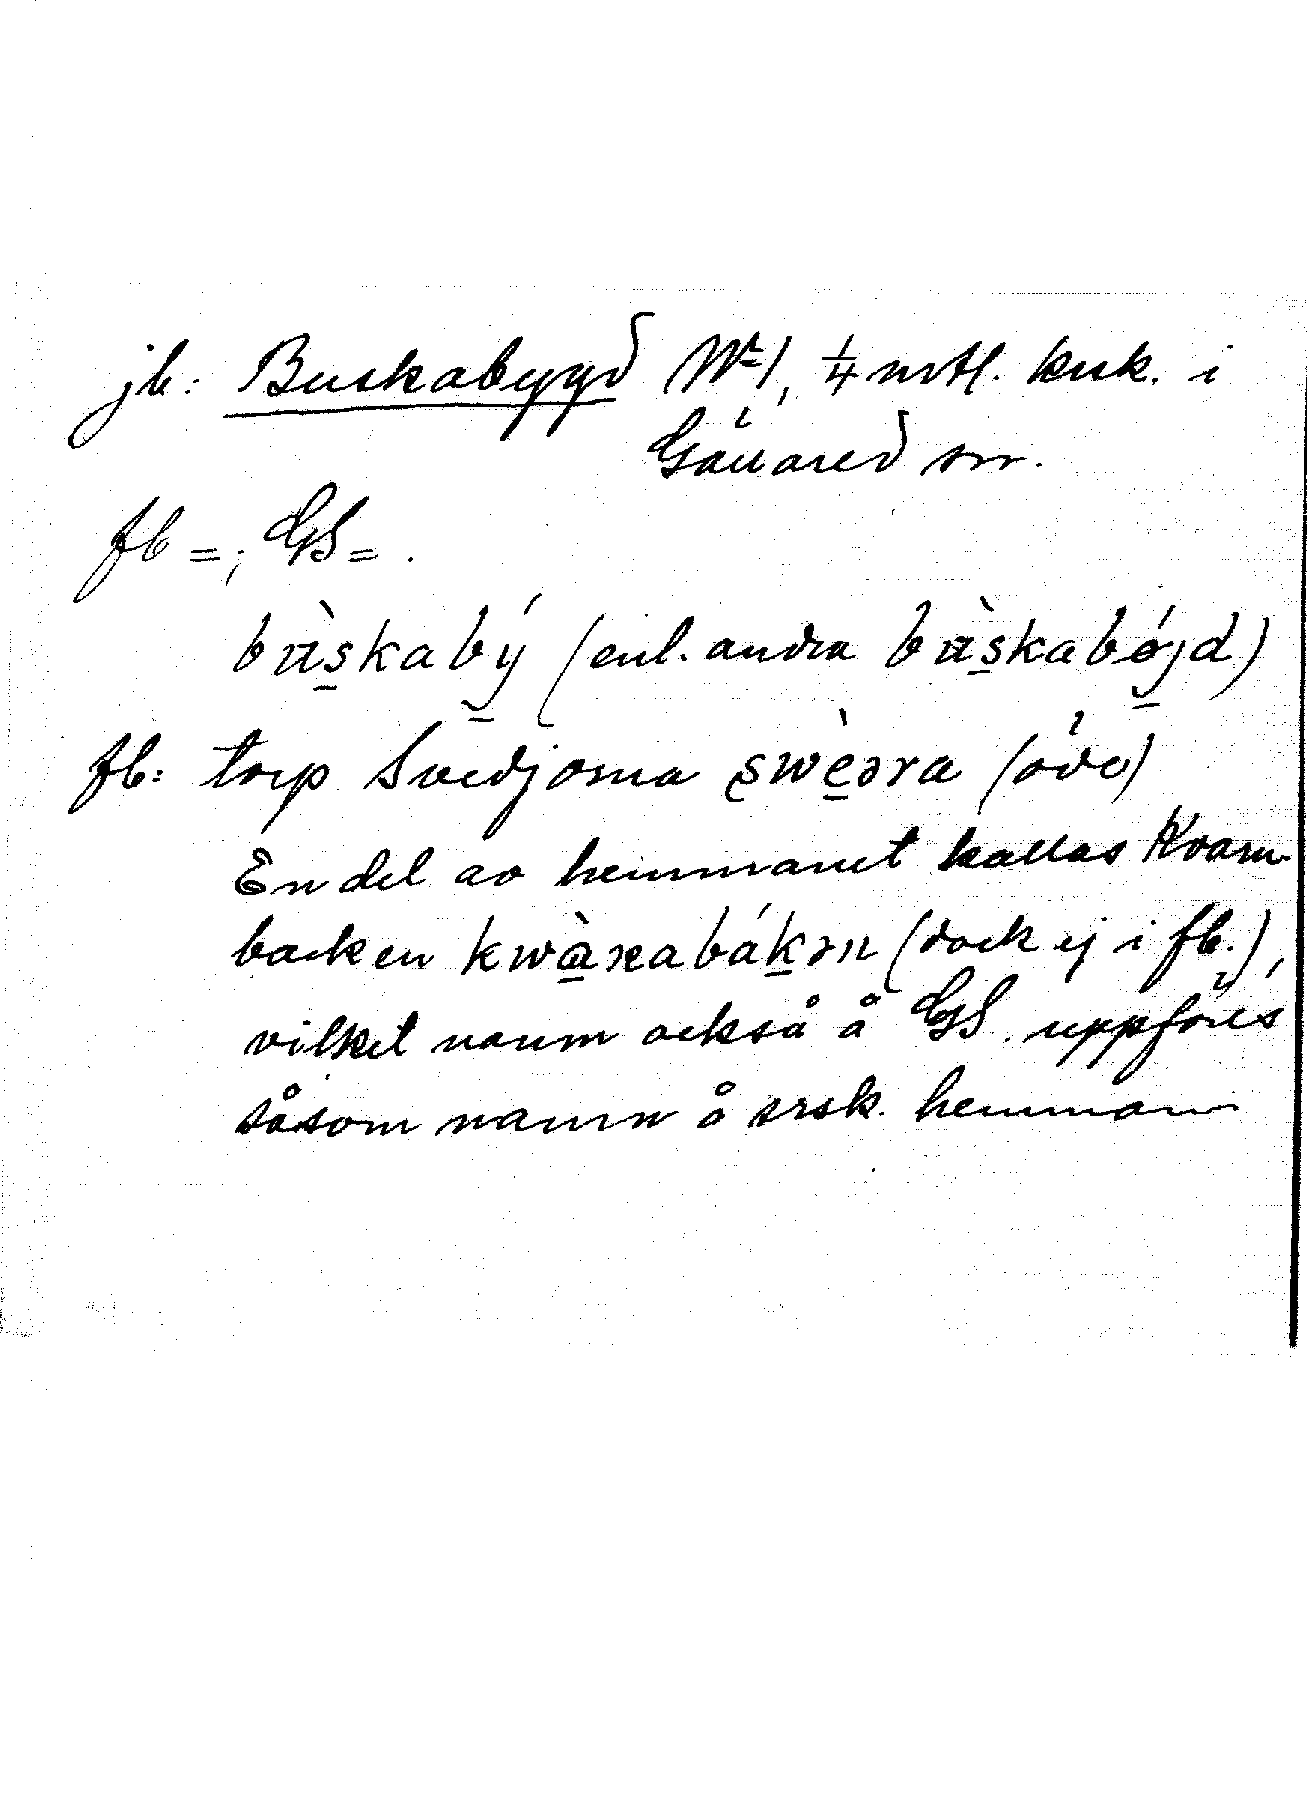 jb: Buskabygd Nº 1, 1/4 mtl. krsk. i
Gällared sn.
fb =; GS = .
bùskabý (enl. andra bùskabǿjd)
fb: torp Svedjorna swèəra (öde)
En del av hemmanet kallas Kvarn-
backen kwàṛnabákən (dock ej i fb.),
vilket namn också å GS. uppföres
såsom namn å srsk. hemman